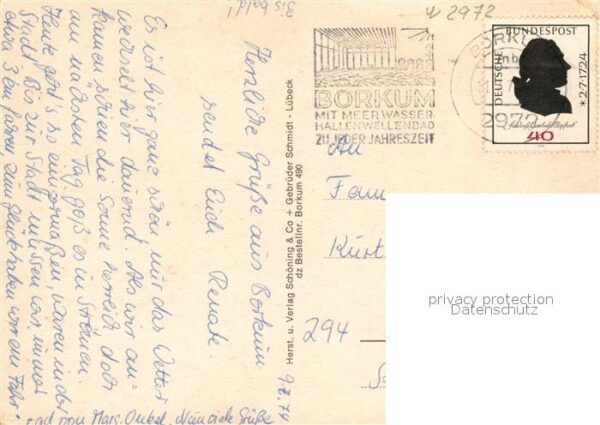 Bis bald!
9.8.74
Herzliche Grüße aus Borkum
sendet Euch Renate.
Es ist hier ganz schön nur das Wetter
wechselt hier dauernd. Als wir an-
kamen schien die Sonne herrlich doch
am nächsten Tag goß es in Strömen.
Heute geht's so einigermaßen, waren in der
Stadt. Bis zur Stadt müssen wir immer
etwa 3 km fahren, zum Glück haben wir ein Fahr-
rad von Marg. Onkel. Grüße
Herst. u. Verlag Schöning & Co + Gebrüder Schmidt - Lübeck
dz Bestellnr. Borkum 490
2972
BORKUM
MIT MEERWASSER-
HALLENWELLENBAD
ZU JEDER JAHRESZEIT
BORKUM
2972
DEUTSCHE BUNDESPOST
*2·7·1724
40
An
Fam
Kurt
294
privacy protection
Datenschutz